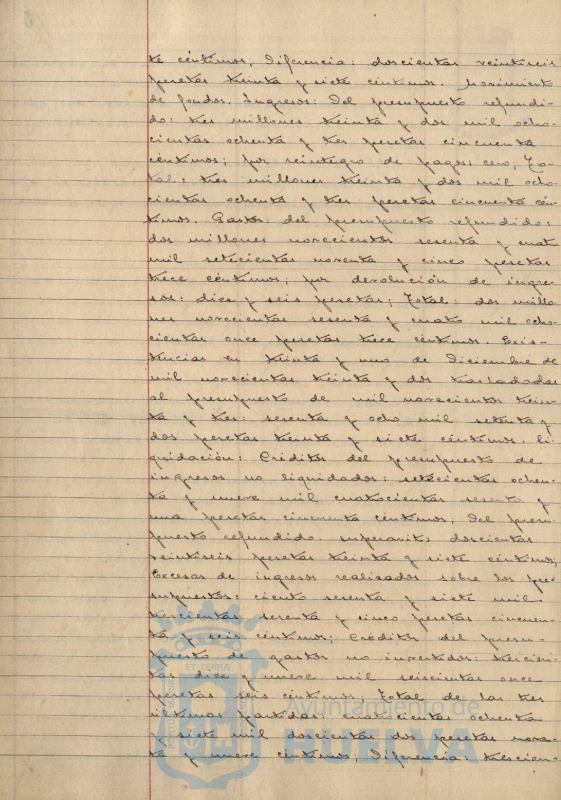 te céntimos, Diferencia: doscientas veintiseis
pesetas treinta y siete céntimos. Movimiento
de fondos. Ingresos: Del presupuesto refundi-
do: tres millones treinta y dos mil ocho-
cientas ochenta y tres pesetas cincuenta
céntimos; por reintegro de pagos: cero, To-
tal: tres millones treinta y dos mil ocho-
cientas ochenta y tres pesetas cincuenta cén-
timos. Gastos: del presupuesto refundido:
dos millones novecientos sesenta y cuatro
mil setecientas noventa y cinco pesetas
trece céntimos; por devolución de ingre-
sos: diez y seis pesetas; Total: dos millo-
nes novecientas sesenta y cuatro mil ocho-
cientas once pesetas trece céntimos. Exis-
tencias en treinta y uno de Diciembre de
mil novecientas treinta y dos trasladadas
al presupuesto de mil novecientos trein-
ta y tres: sesenta y ocho mil setenta y
dos pesetas treinta y siete céntimos. Li-
quidación: Créditos del presupuesto de
ingresos no liquidados: setecientas ochen-
ta y nueve mil cuatrocientas sesenta y
una pesetas cincuenta céntimos, Del presu-
puesto refundido superavit; doscientas
veintiseis pesetas treinta y siete céntimos;
Excesos de ingresos realizados sobre los pre-
supuestos: ciento sesenta y siete mil
trescientas sesenta y cinco pesetas cincuen-
ta y seis céntimos; Créditos del presu-
puesto de gastos no invertidos: trescien-
tas diez y nueve mil seiscientas once
pesetas seis céntimos; Total de las tres
últimas partidas: cuatrocientas ochenta
y siete mil doscientas dos pesetas noven-
ta y nueve céntimos, Diferencia: trescien-
ET TERRA
Ayuntamiento de
HUELVA